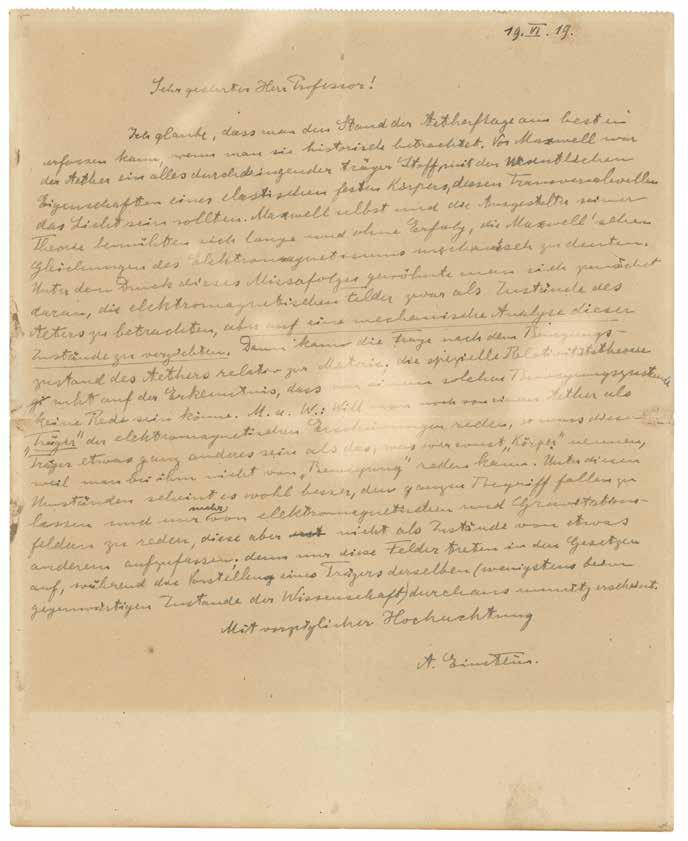 19. VI. 19.
Sehr geehrter Herr Professor!
Ich glaube, dass man den Stand der Aetherfrage am besten
erfassen kann, wenn man sie historisch betrachtet. Vor Maxwell war
der Aether ein alles durchdringender träger Stoff mit den wesentlichen
Eigenschaften eines elastischen festen Körpers, dessen Transversalwellen
das Licht sein sollten. Maxwell selbst und die Ausgestalter seiner
Theorie bemühten sich lange und ohne Erfolg, die Maxwell'schen
Gleichungen des Elektromagnetismus mechanisch zu deuten.
Unter dem Druck dieses Misserfolges gewöhnte man sich zunächst
daran, die elektromagnetischen Felder zwar als Zustände des
Aethers zu betrachten, aber auf eine mechanische Analyse dieser
Zustände zu verzichten. Dann kam die Frage nach dem Bewegungs-
zustand des Aethers relativ zur Materie. die spezielle Relativitätstheorie
auf der Erkenntnis, dass von einem solchen Bewegungszustande
keine Rede sein könne. M. a. W.: Will man noch von einem Aether als
"Träger" der elektromagnetischen Erscheinungen reden, so muss dieser
Träger etwas ganz anderes sein als das, was wir sonst "Körper" nennen,
weil man bei ihm nicht von "Bewegung" reden kann. Unter diesen
Umständen scheint es wohl besser, den ganzen Begriff fallen zu
lassen und nur mehr von elektromagnetischen und Gravitations-
feldern zu reden, diese aber nicht als Zustände von etwas
anderem aufzufassen; denn nur diese Felder treten in den Gesetzen
auf, während die Vorstellung eines Trägers derselben (wenigstens beim
gegenwärtigen Zustande der Wissenschaft) durchaus unnütz erscheint.
Mit vorzüglicher Hochachtung
A. Einstein.